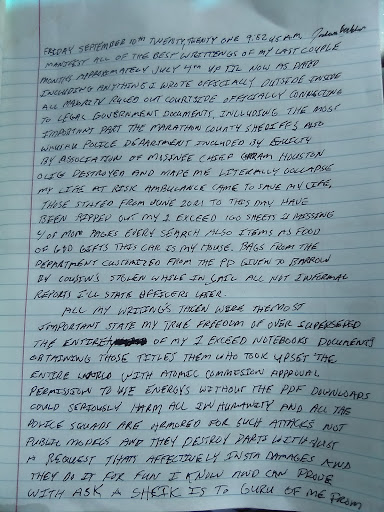 FRIDAY SEPTEMBER 10TH TWENTY, TWENTY ONE 9:52:45 A.M.
MANIFEST ALL OF THE BEST WRITTEINGS OF MY LAST COUPLE
MONTHS APPROXIMATELY JULY 4TH UP TIL NOW AS DATED
INCLUDING ANYTHING I WROTE OFFICIALLY OUTSIDE INSIDE
ALL MAJORITY RULED OUT COURTSIDE OFFICIALLY CONNECTING
TO LEGAL GOVERNMENT DOCUMENTS, INCLUDING THE MOST
IMPORTANT PART THE MARATHON COUNTY SHERIFF'S ALSO
WAUSAU POLICE DEPARTMENT INCLUDED BY
BY ASSOCIATION OF MOSINEE CHIEF HOUSTON
DESTROYED AND MADE ME LITERALLY COLLAPSE
MY LIFE AT RISK AMBULANCE CAME TO SAVE MY LIFE,
THOSE STATED FROM JUNE 2021 TO THIS DAY HAVE
BEEN RIPPED OUT MY I EXCEED 100 SHEETS 4 MISSING
4 OF MORE PAGES EVERY SEARCH ALSO ITEMS AS FOOD
OF GOD GIFTS THIS CAR IS MY HOUSE. BAGS FROM THE
DEPARTMENT CUSTOMIZED FROM THE PD GIVEN TO
BY COUSIN'S STOLEN WHILE IN JAIL ALL NOT INFORMAL
REPORTS I'LL STATE OFFICERS LATER.
ALL MY WRITINGS THEN WERE THE MOST
IMPORTANT STATE MY TRUE FREEDOM OF OVER SUPERSEDED
THE ENTIRE OF MY I EXCEED NOTEBOOKS DOCUMENTS
OBTAINING THOSE TITLES THEM WHO TOOK UPSET THE
ENTIRE WORLD WITH ATOMIC COMMISION APPROVAL
PERMISSION TO USE ENERGYS WITHOUT THE PDF DOWNLOADS
COULD SERIOUSLY HARM ALL IN HUMANITY AND ALL THE
POLICE SQUADS ARE ARMORED FOR SUCH ATTACKS NOT
PUBLIC MODELS AND THEY DESTROY PARTS WITH JUST
A REQUEST THATS AFFECTIVELY INSTA DAMAGES AND
THEY DO IT FOR FUN I KNOW AND CAN PROVE
WITH ASK A SHEIK IS TO GURU OF ME FROM